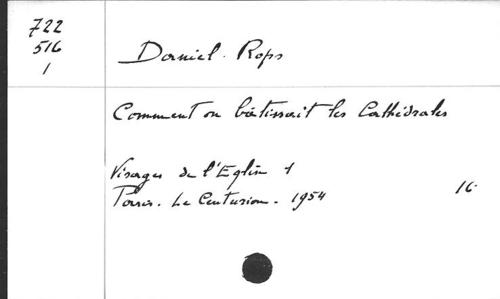 722
516
1
Daniel. Rops
Comment on bâtissait les Cathédrales
Visages de l'Eglise 1
Paris. Le Centurion. 1954
16